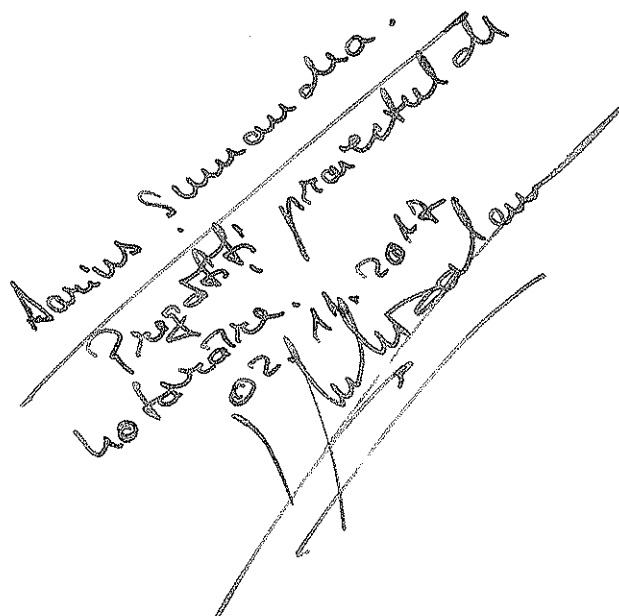 Darius Smaranda.
Pregătiți proiectul de
hotarare.
02.11.2017